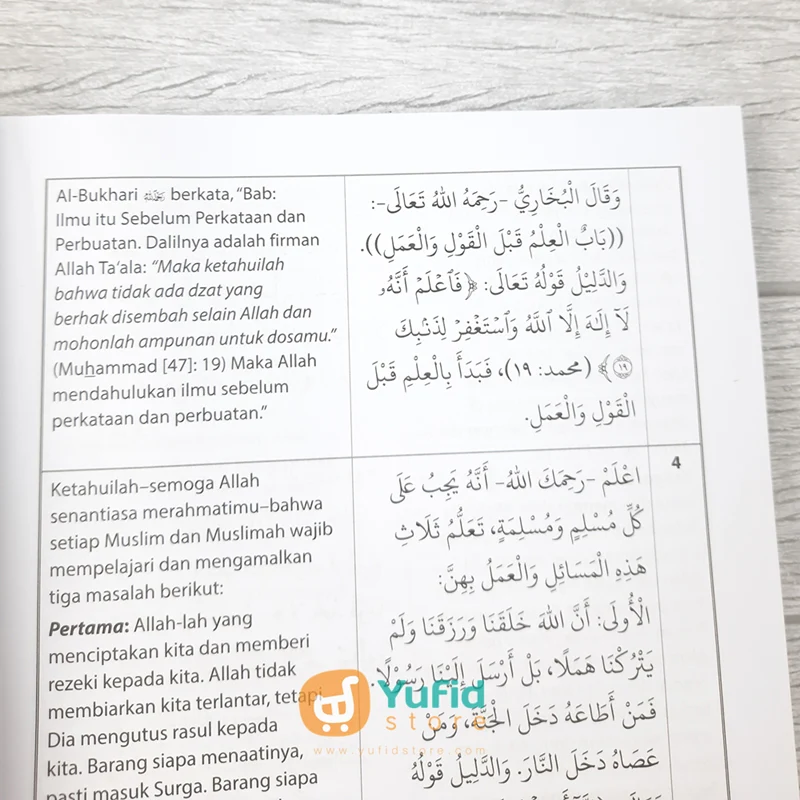 Al-Bukhari رحمه الله berkata, “Bab:
Ilmu itu Sebelum Perkataan dan
Perbuatan. Dalilnya adalah firman
Allah Ta‘ala: “Maka ketahuilah
bahwa tidak ada dzat yang
berhak disembah selain Allah dan
mohonlah ampunan untuk dosamu.”
(Muhammad [47]: 19) Maka Allah
mendahulukan ilmu sebelum
perkataan dan perbuatan.”
وَقَالَ الْبُخَارِيُّ -رَحِمَهُ اللهُ تَعَالَى-:
((بَابٌ الْعِلْمُ قَبْلَ الْقَوْلِ وَالْعَمَلِ)).
وَالدَّلِيْلُ قَوْلُهُ تَعَالَى: ﴿فَٱعۡلَمۡ أَنَّهُۥ
لَآ إِلَٰهَ إِلَّا ٱللَّهُ وَٱسۡتَغۡفِرۡ لِذَنۢبِكَ
۝١٩﴾ (محمد: ١٩)، فَبَدَأَ بِالْعِلْمِ قَبْلَ
الْقَوْلِ وَالْعَمَلِ.
4
Ketahuilah–semoga Allah
senantiasa merahmatimu–bahwa
setiap Muslim dan Muslimah wajib
mempelajari dan mengamalkan
tiga masalah berikut:
Pertama: Allah-lah yang
menciptakan kita dan memberi
rezeki kepada kita. Allah tidak
membiarkan kita terlantar, tetapi
Dia mengutus rasul kepada
kita. Barang siapa menaatinya,
pasti masuk Surga. Barang siapa
اعْلَمْ -رَحِمَكَ اللهُ- أَنَّهُ يَجِبُ عَلَى
كُلِّ مُسْلِمٍ وَمُسْلِمَةٍ، تَعَلُّمُ ثَلَاثِ
هَذِهِ الْمَسَائِلِ وَالْعَمَلُ بِهِنَّ:
الْأُولَى: أَنَّ اللهَ خَلَقَنَا وَرَزَقَنَا وَلَمْ
يَتْرُكْنَا هَمَلًا، بَلْ أَرْسَلَ إِلَيْنَا رَسُوْلًا.
فَمَنْ أَطَاعَهُ دَخَلَ الْجَنَّةَ، وَمَنْ
عَصَاهُ دَخَلَ النَّارَ. وَالدَّلِيْلُ قَوْلُهُ
Yufid
store
www.yufidstore.com